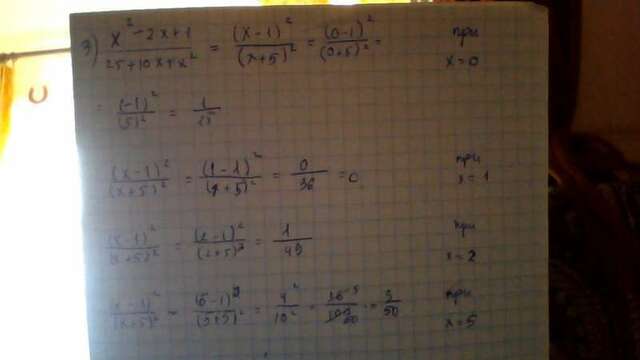 3) (x² - 2x + 1)/(25 + 10x + x²) = (x-1)²/(x+5)² = (0-1)²/(0+5)² = при x = 0
(-1)²/(5)² = 1/25
(x-1)²/(x+5)² = (1-1)²/(1+5)² = 0/36 = 0 при x = 1
(x-1)²/(x+5)² = (2-1)²/(2+5)² = 1/49 при x = 2
(x-1)²/(x+5)² = (5-1)²/(5+5)² = 4²/10² = при x = 5